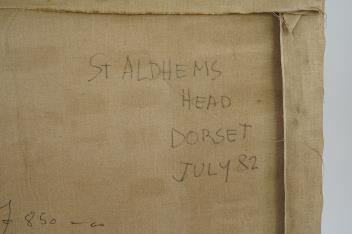 ST ALDHEMS
HEAD
DORSET
JULY 82
850 —